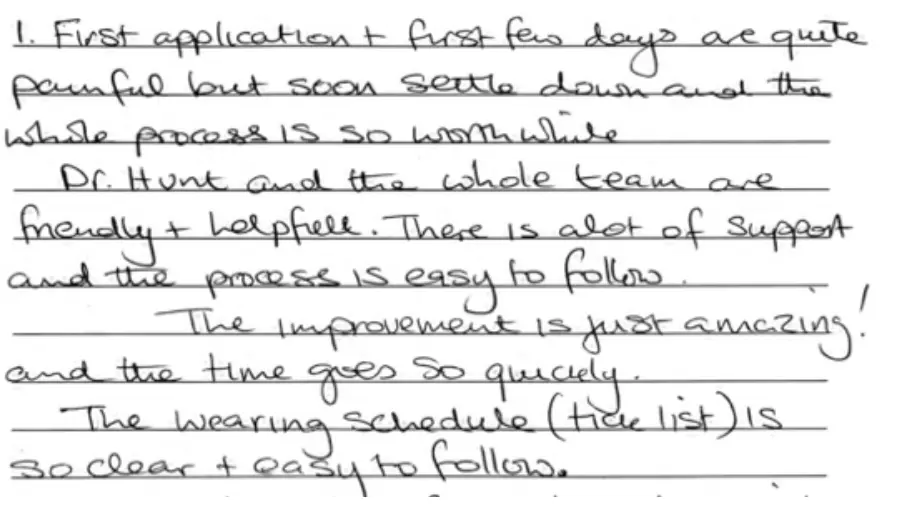 1. First application + first few days are quite
painful but soon settle down and the
whole process is so worthwhile
Dr. Hunt and the whole team are
friendly + helpfull. There is alot of support
and the process is easy to follow.
The improvement is just amazing!
and the time goes so quickly.
The wearing schedule (tick list) is
so clear + easy to follow.